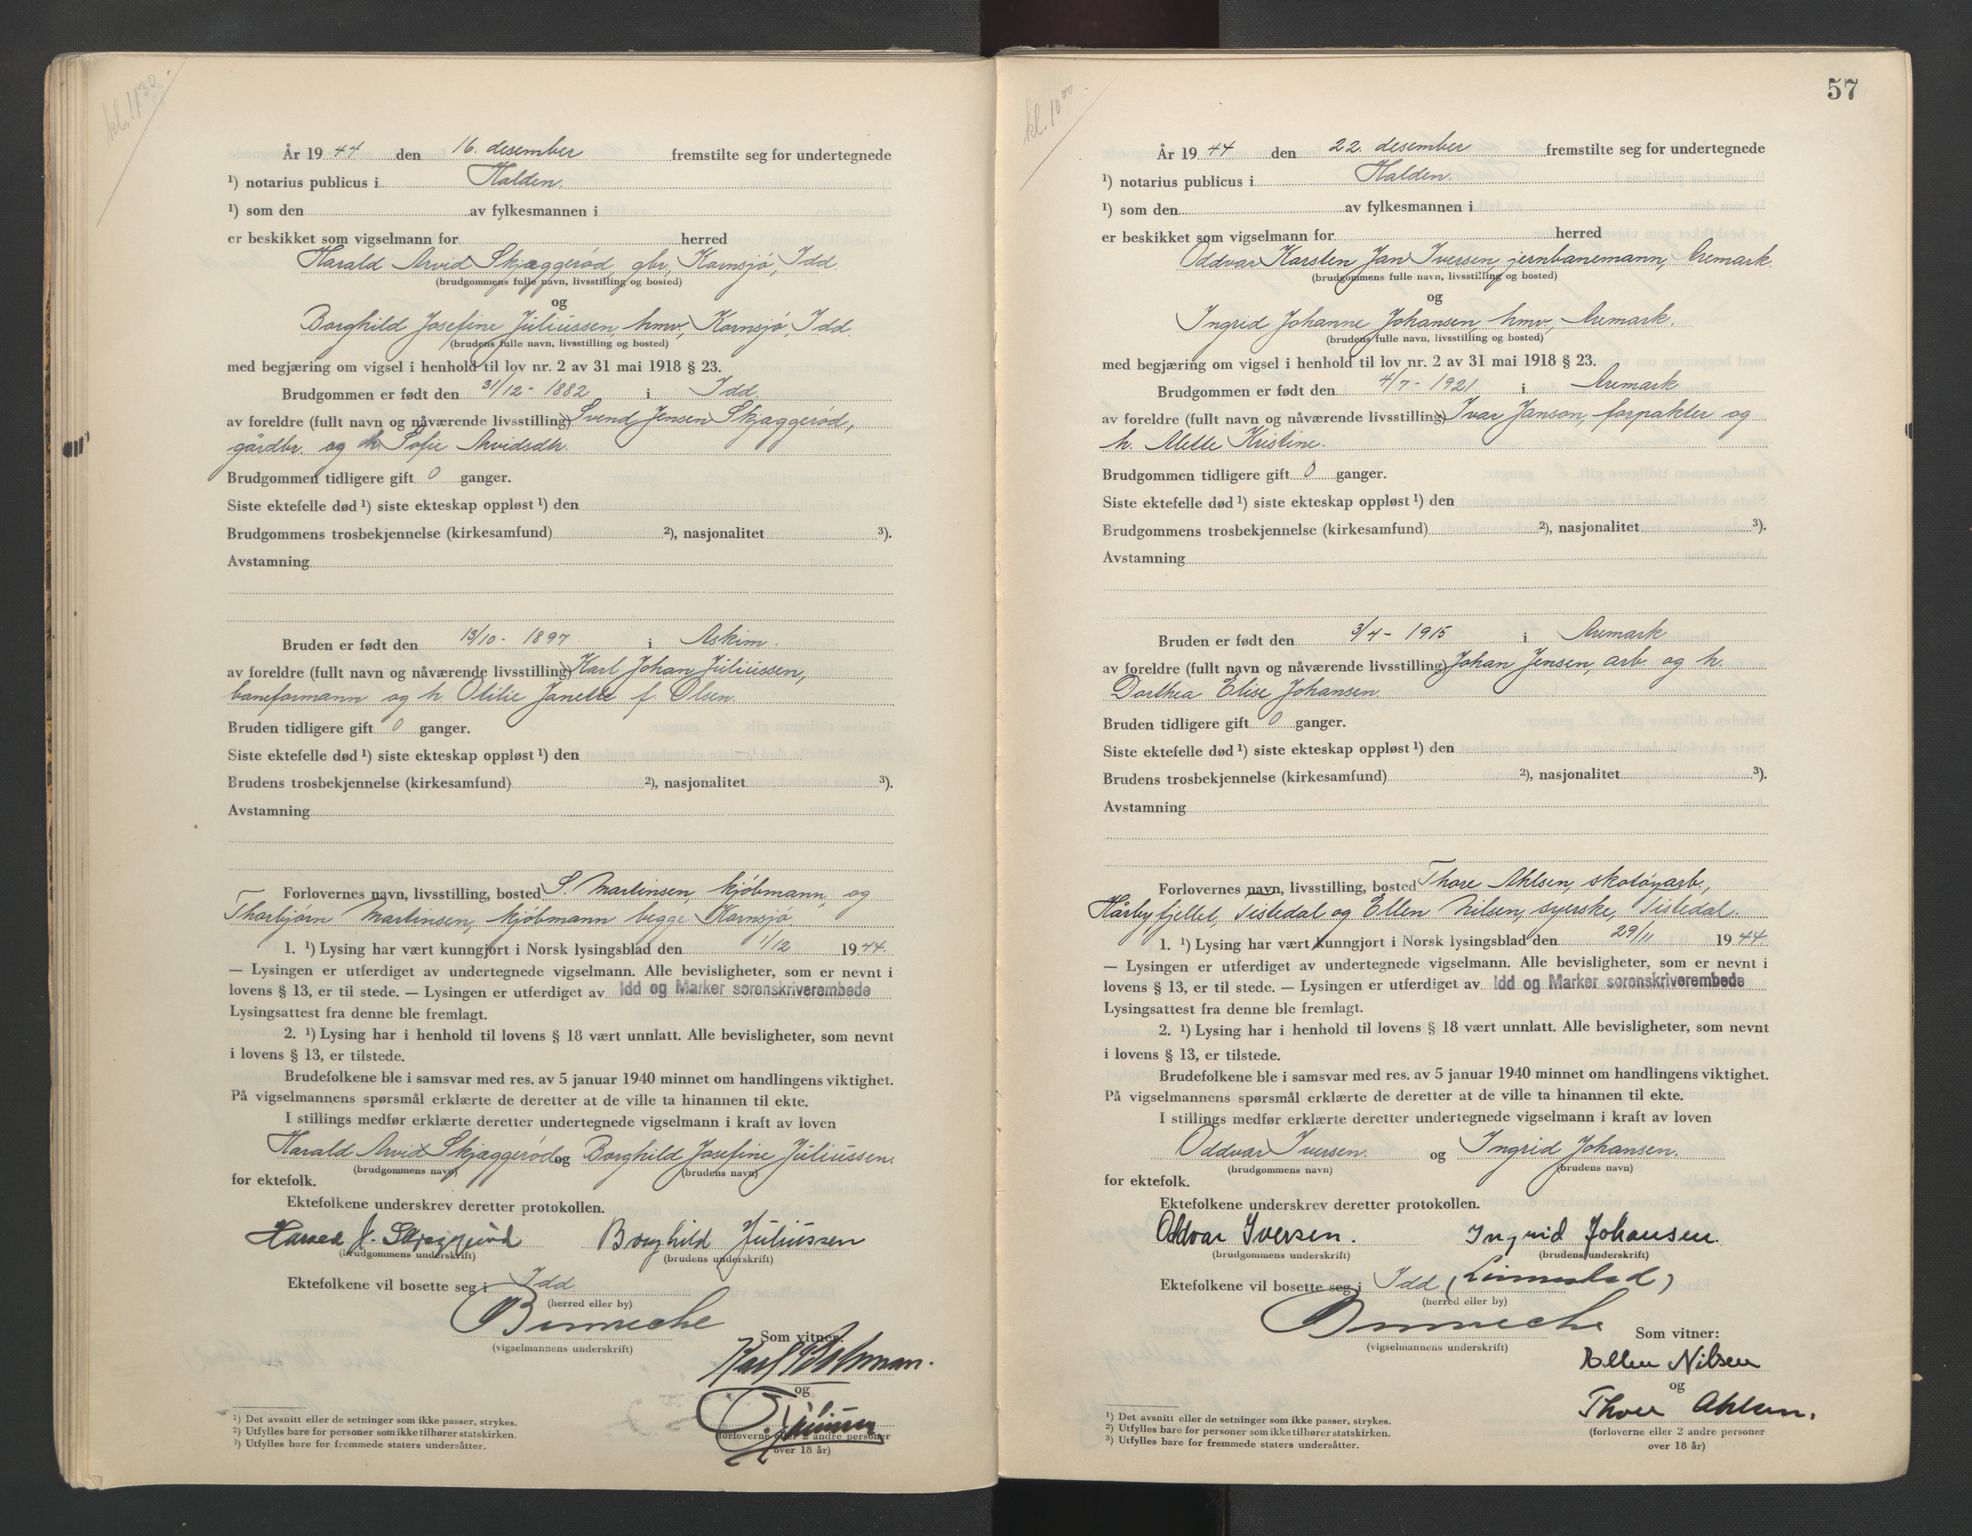 kl. 11³⁰.
År 1944 den 16. desember fremstilte seg for undertegnede
¹) notarius publicus i Halden.
¹) som den av fylkesmannen i
er beskikket som vigselmann for herred
Harald Arvid Skjæggerød, gbr, Kornsjø, Idd.
(brudgommens fulle navn, livsstilling og bosted)
og
Borghild Josefine Júliússen, hmv, Kornsjø, Idd.
(brudens fulle navn, livsstilling og bosted)
med begjæring om vigsel i henhold til lov nr. 2 av 31 mai 1918 § 23.
Brudgommen er født den 31/12 - 1882 i Idd.
av foreldre (fullt navn og nåværende livsstilling) Svend Jensen Skjæggerød,
gårdbr. og h. Sofie Arvidsdtr.
Brudgommen tidligere gift 0 ganger.
Siste ektefelle død ¹) siste ekteskap oppløst ¹) den
Brudgommens trosbekjennelse (kirkesamfund) ²), nasjonalitet ³).
Avstamning
Bruden er født den 13/10 - 1897 i Askim.
av foreldre (fullt navn og nåværende livsstilling) Karl Johan Júliússen,
baneformann og h. Otilie Janette f. Olsen.
Bruden tidligere gift 0 ganger.
Siste ektefelle død ¹) siste ekteskap oppløst ¹) den
Brudens trosbekjennelse (kirkesamfund) ²), nasjonalitet ³).
Avstamning
Forlovernes navn, livsstilling, bosted S. Martinsen, kjøbmann og
Thorbjørn Martinsen, kjøbmann begge Kornsjø.
1. ¹) Lysing har vært kunngjort i Norsk lysingsblad den 1/12 1944.
— Lysingen er utferdiget av undertegnede vigselmann. Alle bevisligheter, som er nevnt i
lovens § 13, er til stede. — Lysingen er utferdiget av Idd og Marker sorenskriverembede
Lysingsattest fra denne ble fremlagt.
2. ¹) Lysing har i henhold til lovens § 18 vært unnlatt. Alle bevisligheter, som nevnt
i lovens § 13, er tilstede.
Brudefolkene ble i samsvar med res. av 5 januar 1940 minnet om handlingens viktighet.
På vigselmannens spørsmål erklærte de deretter at de ville ta hinannen til ekte.
I stillings medfør erklærte deretter undertegnede vigselmann i kraft av loven
Harald Arvid Skjæggerød og Borghild Josefine Júliússen.
(brudgommens navn) (brudens navn)
for ektefolk.
Ektefolkene underskrev deretter protokollen.
Borghild Júliússen
(brudgommens underskrift) (brudens underskrift)
Ektefolkene vil bosette seg i Idd
(herred eller by)
Som vitner:
(vigselmannens underskrift)
og
(forloverne eller 2 andre personer
over 18 år)
¹) Det avsnitt eller de setninger som ikke passer, strykes.
²) Utfylles bare for personer som ikke tilhører statskirken.
³) Utfylles bare for fremmede staters undersåtter.
57
kl. 10⁰⁰.
År 1944 den 22. desember fremstilte seg for undertegnede
¹) notarius publicus i Halden.
¹) som den av fylkesmannen i
er beskikket som vigselmann for herred
Oddvar Karsten Jan Iversen, jernbanemann, Aremark.
(brudgommens fulle navn, livsstilling og bosted)
og
Ingrid Johanne Johansen, hmv, Aremark.
(brudens fulle navn, livsstilling og bosted)
med begjæring om vigsel i henhold til lov nr. 2 av 31 mai 1918 § 23.
Brudgommen er født den 4/7 - 1921 i Aremark
av foreldre (fullt navn og nåværende livsstilling) Ivar Janson, forpakter og
h. Alette Kristine.
Brudgommen tidligere gift 0 ganger.
Siste ektefelle død ¹) siste ekteskap oppløst ¹) den
Brudgommens trosbekjennelse (kirkesamfund) ²), nasjonalitet ³).
Avstamning
Bruden er født den 3/4 - 1915 i Aremark
av foreldre (fullt navn og nåværende livsstilling) Johan Jensen, arb. og h.
Dorthea Elise Johansen.
Bruden tidligere gift 0 ganger.
Siste ektefelle død ¹) siste ekteskap oppløst ¹) den
Brudens trosbekjennelse (kirkesamfund) ²), nasjonalitet ³).
Avstamning
Forlovernes navn, livsstilling, bosted Thore Ahlsen, skotøyarb.,
Hårbyfjellet, Tistedal og Ellen Nilsen, syerske, Tistedal.
1. ¹) Lysing har vært kunngjort i Norsk lysingsblad den 29/11 1944.
— Lysingen er utferdiget av undertegnede vigselmann. Alle bevisligheter, som er nevnt i
lovens § 13, er til stede. — Lysingen er utferdiget av Idd og Marker sorenskriverembede
Lysingsattest fra denne ble fremlagt.
2. ¹) Lysing har i henhold til lovens § 18 vært unnlatt. Alle bevisligheter, som nevnt
i lovens § 13, er tilstede.
Brudefolkene ble i samsvar med res. av 5 januar 1940 minnet om handlingens viktighet.
På vigselmannens spørsmål erklærte de deretter at de ville ta hinannen til ekte.
I stillings medfør erklærte deretter undertegnede vigselmann i kraft av loven
Oddvar Iversen. og Ingrid Johansen.
(brudgommens navn) (brudens navn)
for ektefolk.
Ektefolkene underskrev deretter protokollen.
Oddvar Iversen. Ingrid Johansen.
(brudgommens underskrift) (brudens underskrift)
Ektefolkene vil bosette seg i Idd
(herred eller by)
Som vitner:
(vigselmannens underskrift)
Ellen Nilsen
og
Thore Ahlsen.
(forloverne eller 2 andre personer
over 18 år)
¹) Det avsnitt eller de setninger som ikke passer, strykes.
²) Utfylles bare for personer som ikke tilhører statskirken.
³) Utfylles bare for fremmede staters undersåtter.